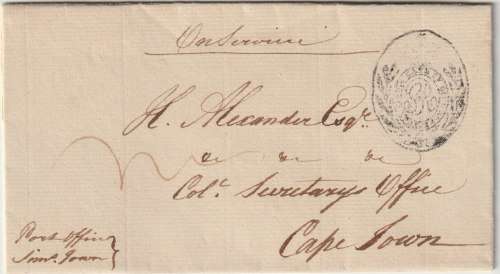 On Service
H. Alexander Esqr.
&c &c &c
Coll. Secretarys Office
Cape Town
Port Office
Sims. Town